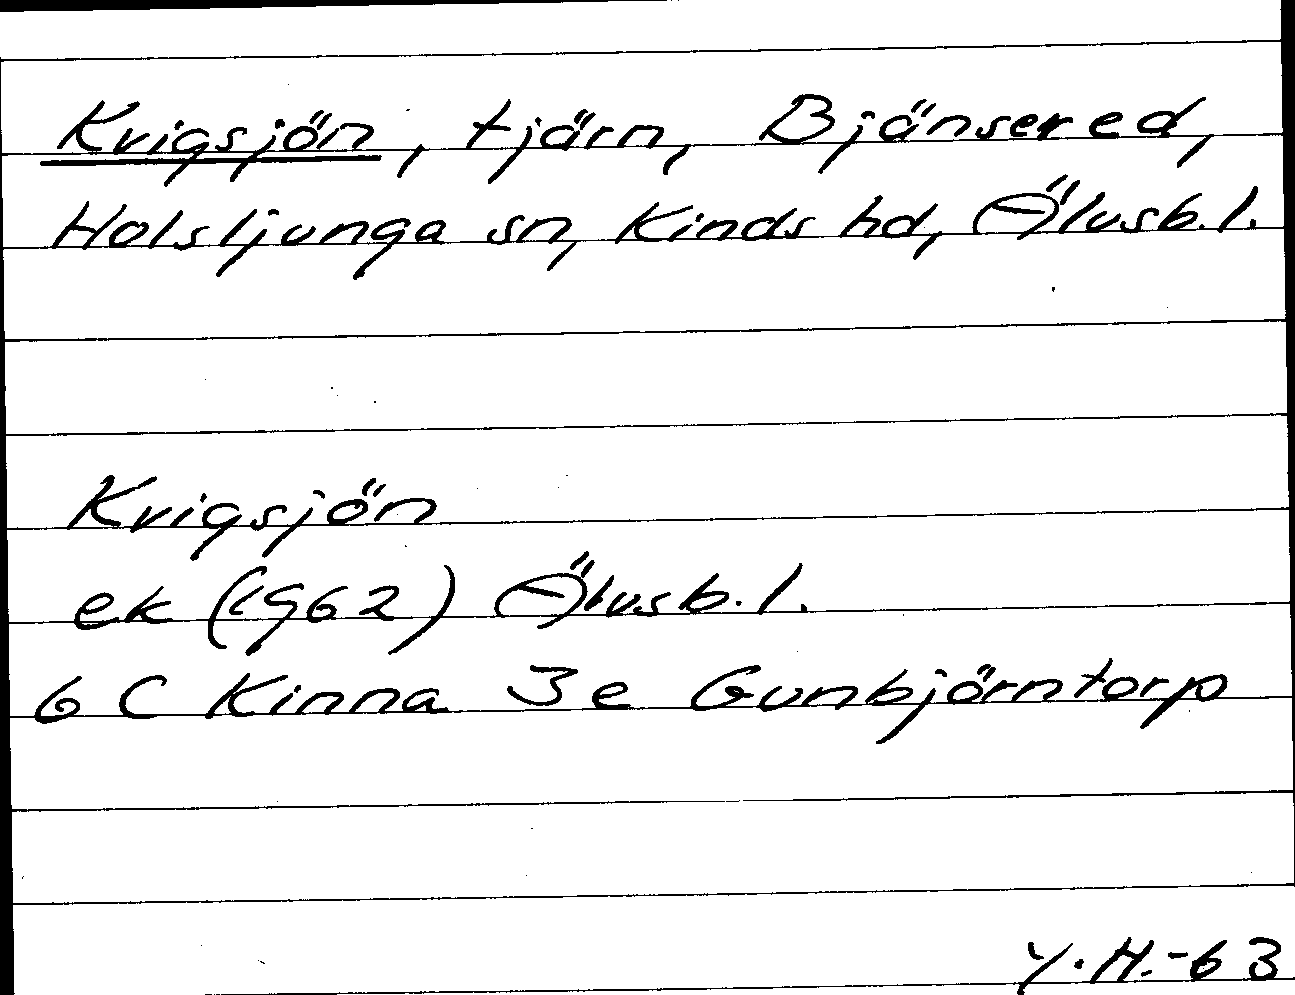 Kvigsjön, tjärn, Bjänsered,
Holsljunga sn, Kinds hd, Älvsb.l.
Kvigsjön
ek (1962) Älvsb.l.
6 C Kinna 3e Gunbjörntorp
Y.H.-63